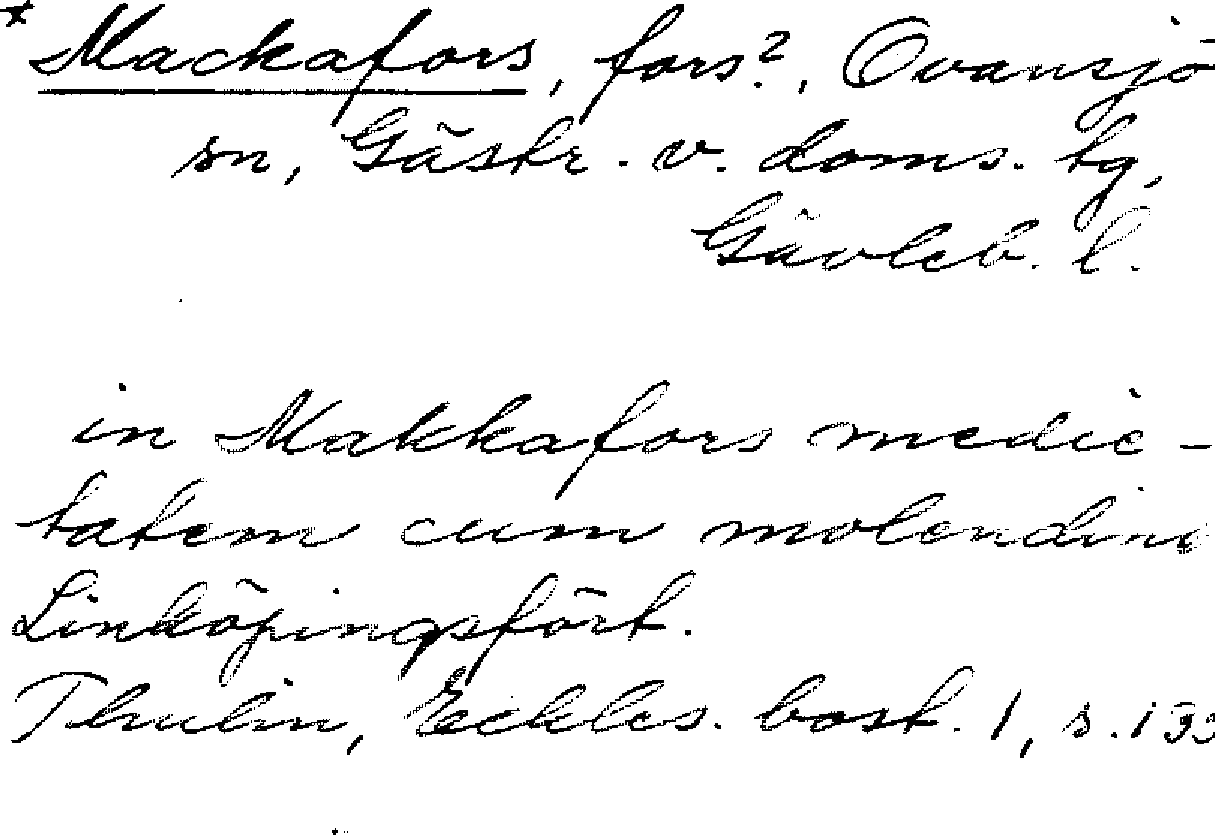 * Mackafors, fors?, Ovansjö
sn, Gästr. v. doms. tg,
Gävleb. l.
in Makkafors medie-
tatem cum molendino
Linköpingsfört.
Thulin, Eckles. bost. 1, s. 133